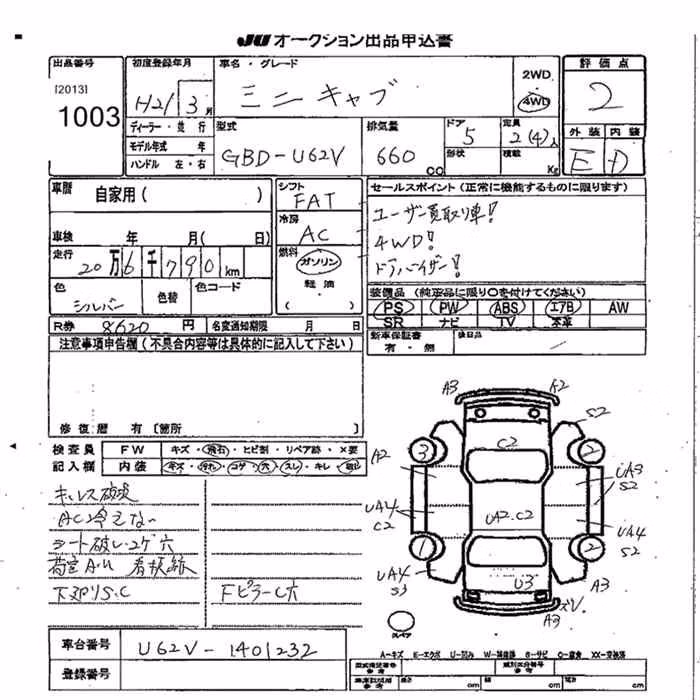 JU オークション出品申込書
出品番号
[2013]
1003
初度登録年月
H21 3月
ディーラー・並行
モデル年式 年
ハンドル 左・右
車名・グレード
ミニキャブ
2WD
4WD
型式
GBD-U62V
排気量
660 cc
ドア 5
形状
定員 2(4)人
積載 Kg
評価点
2
外装 内装
E D
車暦 自家用( )
車検 年 月( 日)
走行 20万6千790km
色 シルバー
色替
色コード
シフト FAT
冷房 AC
燃料 ガソリン
軽油
( )
セールスポイント(正常に機能するものに限ります)
ユーザー買取り車!
4WD!
ドアバイザー!
装備品(純正品に限り○を付けてください)
PS PW ABS エアB AW
SR ナビ TV 本革
新車保証書 後日品
有・無
R券 8620円 名変通知期限 月 日
注意事項申告欄(不具合内容等は具体的に記入して下さい)
修復歴 有 [箇所 ]
検査員記入欄
FW キズ・飛石・ヒビ割・リペア跡・×要
内装 キズ・汚れ・コゲ・穴・スレ・キレ・
キーレス破損
AC冷えない
シート破レコゲ穴
荷室AU 看板跡
下廻りS.C
Fピラー C穴
車台番号 U62V-1401232
登録番号
A3 A2
S2
C2
3 2
A2
UA3
S2
UA4
C2
UA2.C2
UA4
S2
1 2
UA4
S3
U3
A3
ズV
A3
スペア
A-キズ E-エクボ U-凹み W-補修跡 S-サビ C-腐食 XX-交換済
型式指定番号
類別区分番号
参考
車庫証明参考 長さ cm 幅 cm 高さ cm